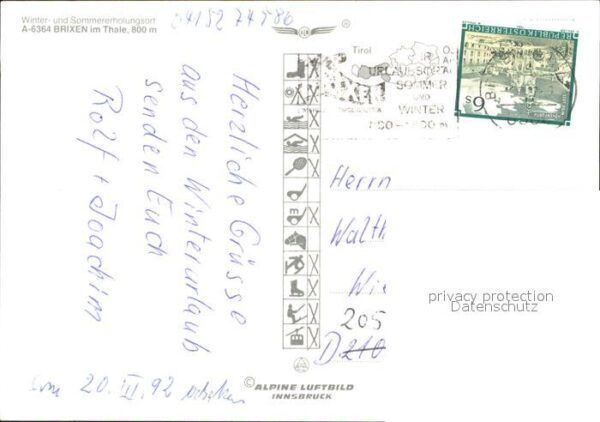 Winter- und Sommererholungsort
A-6364 BRIXEN im Thale, 800 m
04152 74986
Herzliche Grüsse
aus den Winterurlaub
senden Euch
Rolf + Joachim
vom 20. III. 92
Tirol
URLAUBSORT
SOMMER
UND
WINTER
REPUBLIK ÖSTERREICH
S 6
Herrn
Walth
Wie
205
D 210
privacy protection
Datenschutz
© ALPINE LUFTBILD
INNSBRUCK